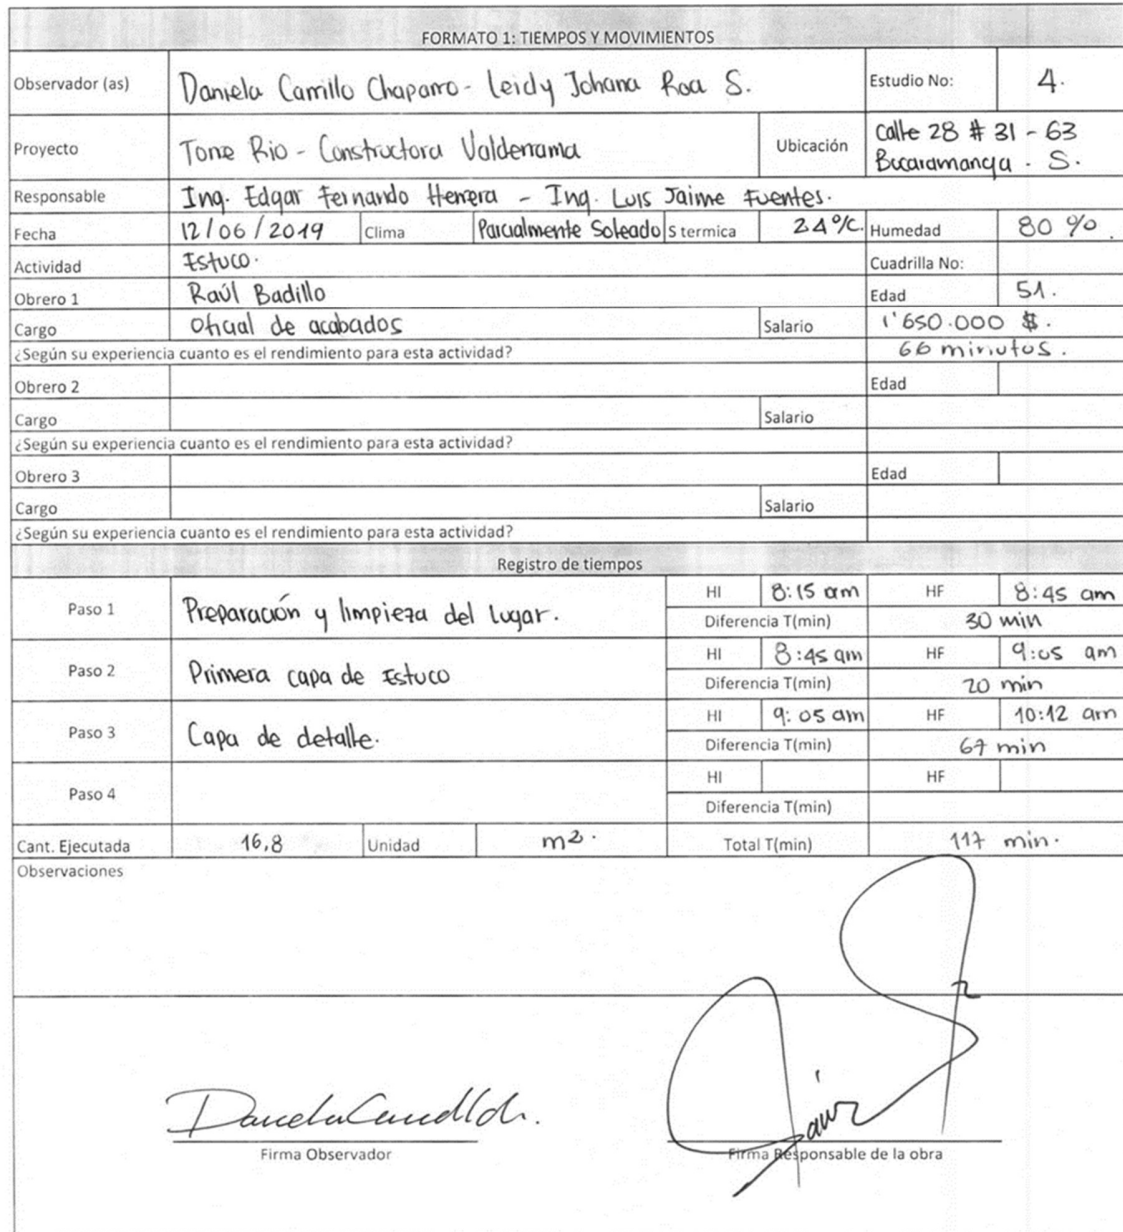 FORMATO 1: TIEMPOS Y MOVIMIENTOS
Observador (as) Daniela Carrillo Chaparro - Leidy Johana Roa S. Estudio No: 4.
Proyecto Torre Rio - Constructora Valderrama Ubicación Calle 28 # 31 - 63
Bucaramanga . S.
Responsable Ing. Edgar Fernando Herrera - Ing. Luis Jaime Fuentes.
Fecha 12/06/2019 Clima Parcialmente Soleado S termica 24°/C. Humedad 80 %.
Actividad Estuco. Cuadrilla No:
Obrero 1 Raúl Badillo Edad 51.
Cargo Oficial de acabados Salario 1'650.000 $.
¿Según su experiencia cuanto es el rendimiento para esta actividad? 66 minutos.
Obrero 2 Edad
Cargo Salario
¿Según su experiencia cuanto es el rendimiento para esta actividad?
Obrero 3 Edad
Cargo Salario
¿Según su experiencia cuanto es el rendimiento para esta actividad?
Registro de tiempos
Paso 1 Preparación y limpieza del lugar. HI 8:15 am HF 8:45 am
Diferencia T(min) 30 min
Paso 2 Primera capa de Estuco HI 8:45 am HF 9:05 am
Diferencia T(min) 20 min
Paso 3 Capa de detalle. HI 9:05 am HF 10:12 am
Diferencia T(min) 67 min
Paso 4 HI HF
Diferencia T(min)
Cant. Ejecutada 16,8 Unidad m2. Total T(min) 117 min.
Observaciones
Firma Observador Firma Responsable de la obra